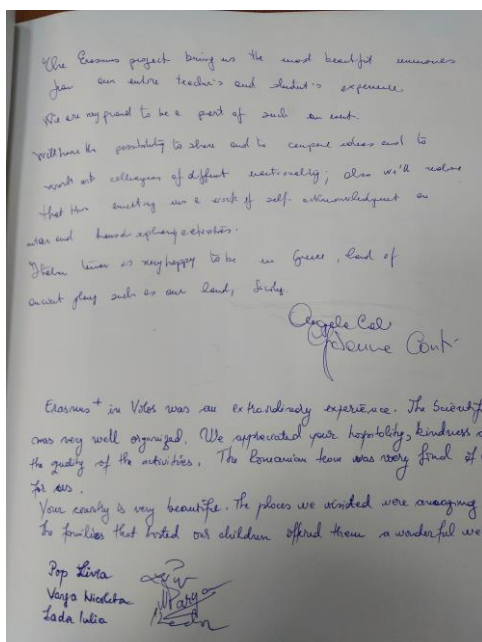 The Erasmus project bring us the most beautiful memories
from our entire teacher's and student's experience
We are very proud to be a part of such an event.
We'll have the possibility to share and to compare ideas and to
work with colleagues of different nationality; also we'll realise
that this meeting was a work of self-acknowledgment on
and
Italian team is very happy to be in Greece, land of
ancient glory such as our land, Sicily.
Angela
Conti
Erasmus+ in Volos was an extraordinary experience. The Scientif
was very well organized. We appreciated your hospitality, kindness
the quality of the activities. The Romanian team was very fond of
for us.
Your country is very beautiful. The places we visited were amazing
The families that hosted our children offered them a wonderful we
Pop Livia
Varga Nicoleta
Lada Iulia